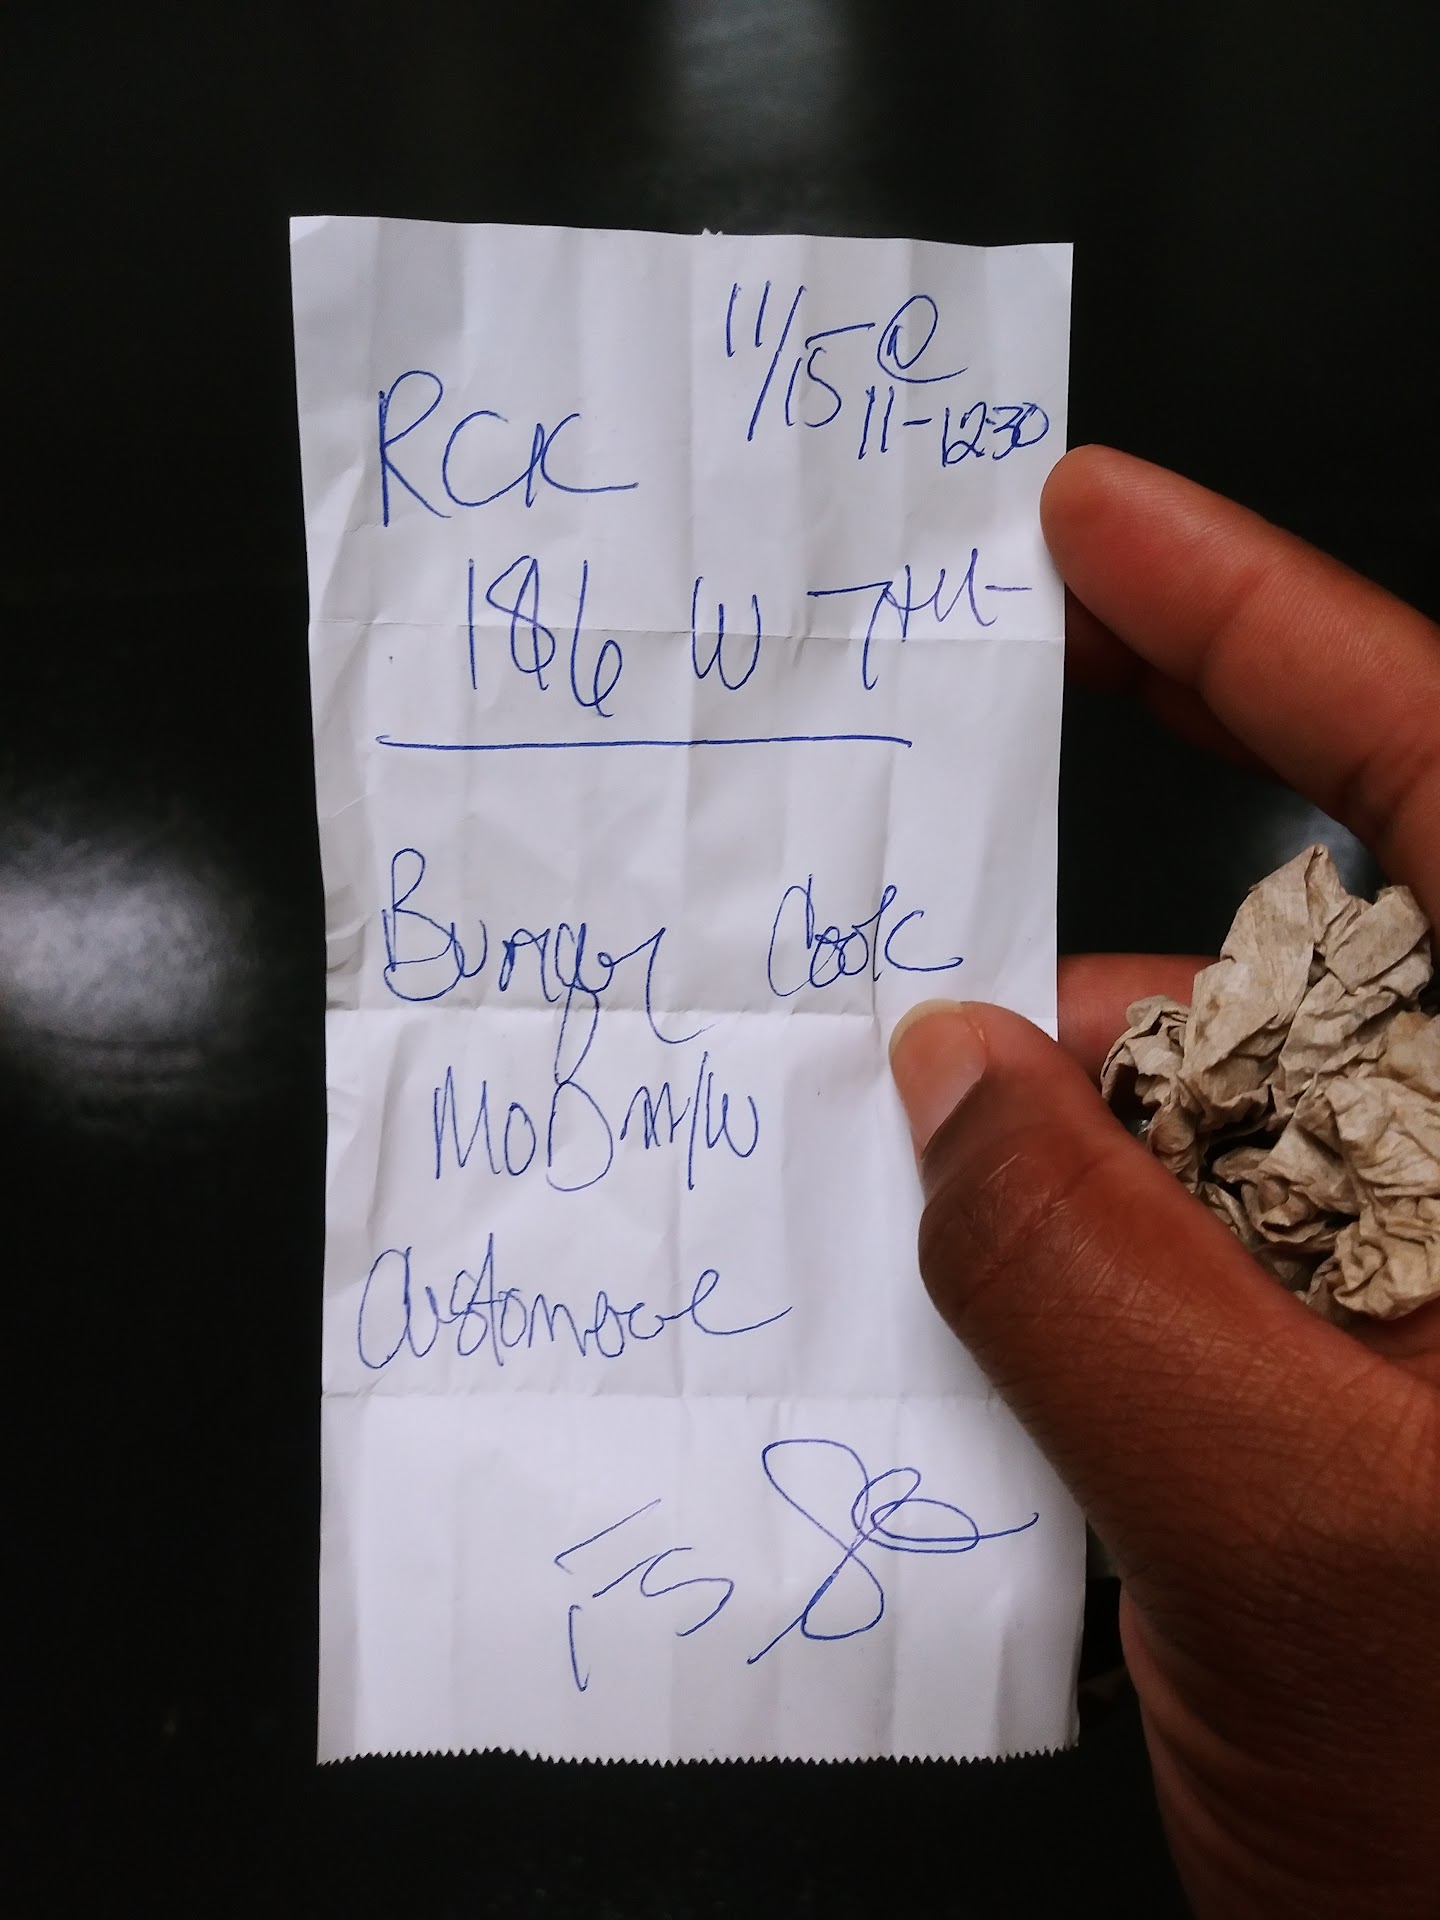 11/15 @
11-1230
RCK
186 W 7th
Burger Cook
MOD m/w